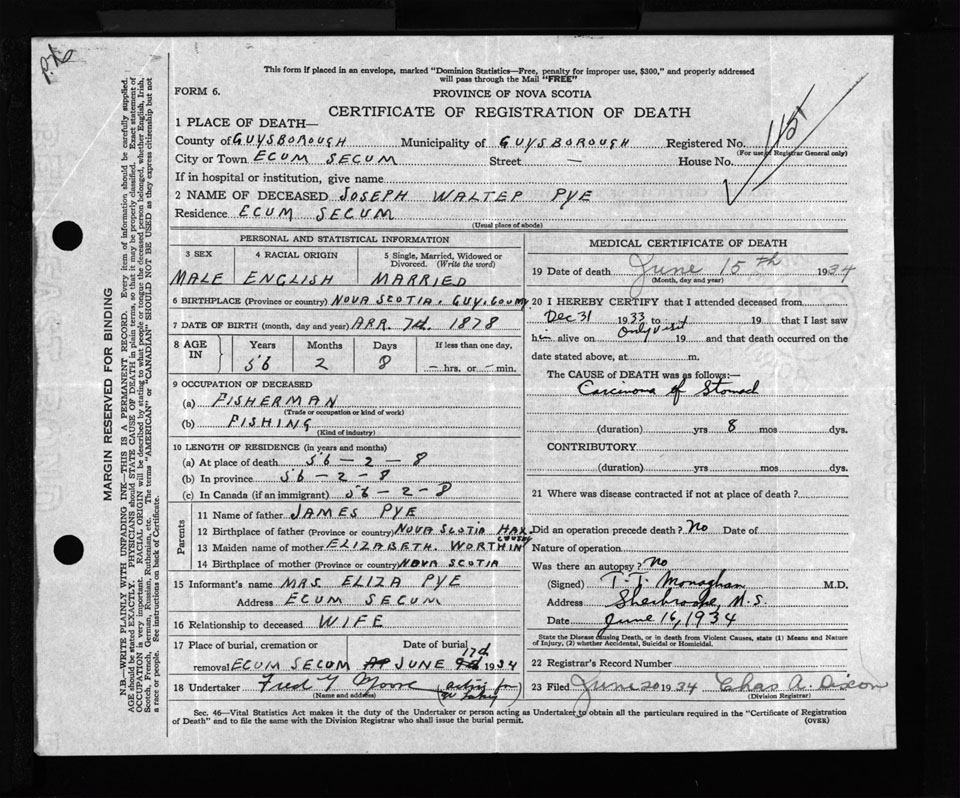 P.X6
This form if placed in an envelope, marked "Dominion Statistics—Free, penalty for improper use, $300," and properly addressed
will pass through the Mail "FREE"
FORM 6.
PROVINCE OF NOVA SCOTIA
CERTIFICATE OF REGISTRATION OF DEATH
1 PLACE OF DEATH—
County of GUYSBOROUGH Municipality of GUYSBOROUGH Registered No. 1151
(For use of Registrar General only)
City or Town ECUM SECUM Street — House No.
If in hospital or institution, give name
2 NAME OF DECEASED JOSEPH WALTER PYE
Residence ECUM SECUM
(Usual place of abode)
PERSONAL AND STATISTICAL INFORMATION
3 SEX 4 RACIAL ORIGIN 5 Single, Married, Widowed or Divorced. (Write the word)
MALE ENGLISH MARRIED
6 BIRTHPLACE (Province or country) NOVA SCOTIA. GUY. COUNTY
7 DATE OF BIRTH (month, day and year) APR. 7th. 1878
8 AGE IN Years Months Days If less than one day,
56 2 8 — hrs. or — min.
9 OCCUPATION OF DECEASED
(a) FISHERMAN
(Trade or occupation or kind of work)
(b) FISHING
(Kind of industry)
10 LENGTH OF RESIDENCE (in years and months)
(a) At place of death 56 — 2 — 8
(b) In province 56 — 2 — 8
(c) In Canada (if an immigrant) 56 — 2 — 8
Parents
11 Name of father JAMES PYE
12 Birthplace of father (Province or country) NOVA SCOTIA HAX COUNTY
13 Maiden name of mother ELIZABETH. WORTHIN
14 Birthplace of mother (Province or country) NOVA SCOTIA
15 Informant's name MRS. ELIZA PYE
Address ECUM SECUM
16 Relationship to deceased WIFE
17 Place of burial, cremation or Date of burial
removal ECUM SECUM JUNE 17th 1934
18 Undertaker Fred Y Moore (acting for
(Name and address)
MEDICAL CERTIFICATE OF DEATH
19 Date of death June 15th 1934
(Month, day and year)
20 I HEREBY CERTIFY that I attended deceased from
Dec 31 1933 to 19 that I last saw
him alive on Only visit 19 and that death occurred on the
date stated above, at m.
The CAUSE of DEATH was as follows:—
Carcinoma of Stomach
(duration) yrs 8 mos dys.
CONTRIBUTORY
(duration) yrs mos dys.
21 Where was disease contracted if not at place of death?
Did an operation precede death? No Date of
Nature of operation
Was there an autopsy? No
(Signed) T. T. Monaghan M.D.
Address Sherbrooke, N.S
Date June 16, 1934
State the Disease causing Death, or in death from Violent Causes, state (1) Means and Nature
of Injury, (2) whether Accidental, Suicidal or Homicidal.
22 Registrar's Record Number
23 Filed June 20 1934 Chas A. Dixon
(Division Registrar)
Sec. 46—Vital Statistics Act makes it the duty of the Undertaker or person acting as Undertaker to obtain all the particulars required in the "Certificate of Registration
of Death" and to file the same with the Division Registrar who shall issue the burial permit.
(OVER)
MARGIN RESERVED FOR BINDING
N.B.—WRITE PLAINLY WITH UNFADING INK—THIS IS A PERMANENT RECORD. Every item of information should be carefully supplied.
AGE should be stated EXACTLY. PHYSICIANS should STATE CAUSE OF DEATH in plain terms, so that it may be properly classified. Exact statement of
OCCUPATION is very important. RACIAL ORIGIN will be described by stating to what people or tongue the deceased person belonged, whether English, Irish,
Scotch, French, German, Russian, Ruthenian, etc. The terms "AMERICAN" or "CANADIAN" SHOULD NOT BE USED as they express citizenship but not
a race or people. See instructions on back of Certificate.